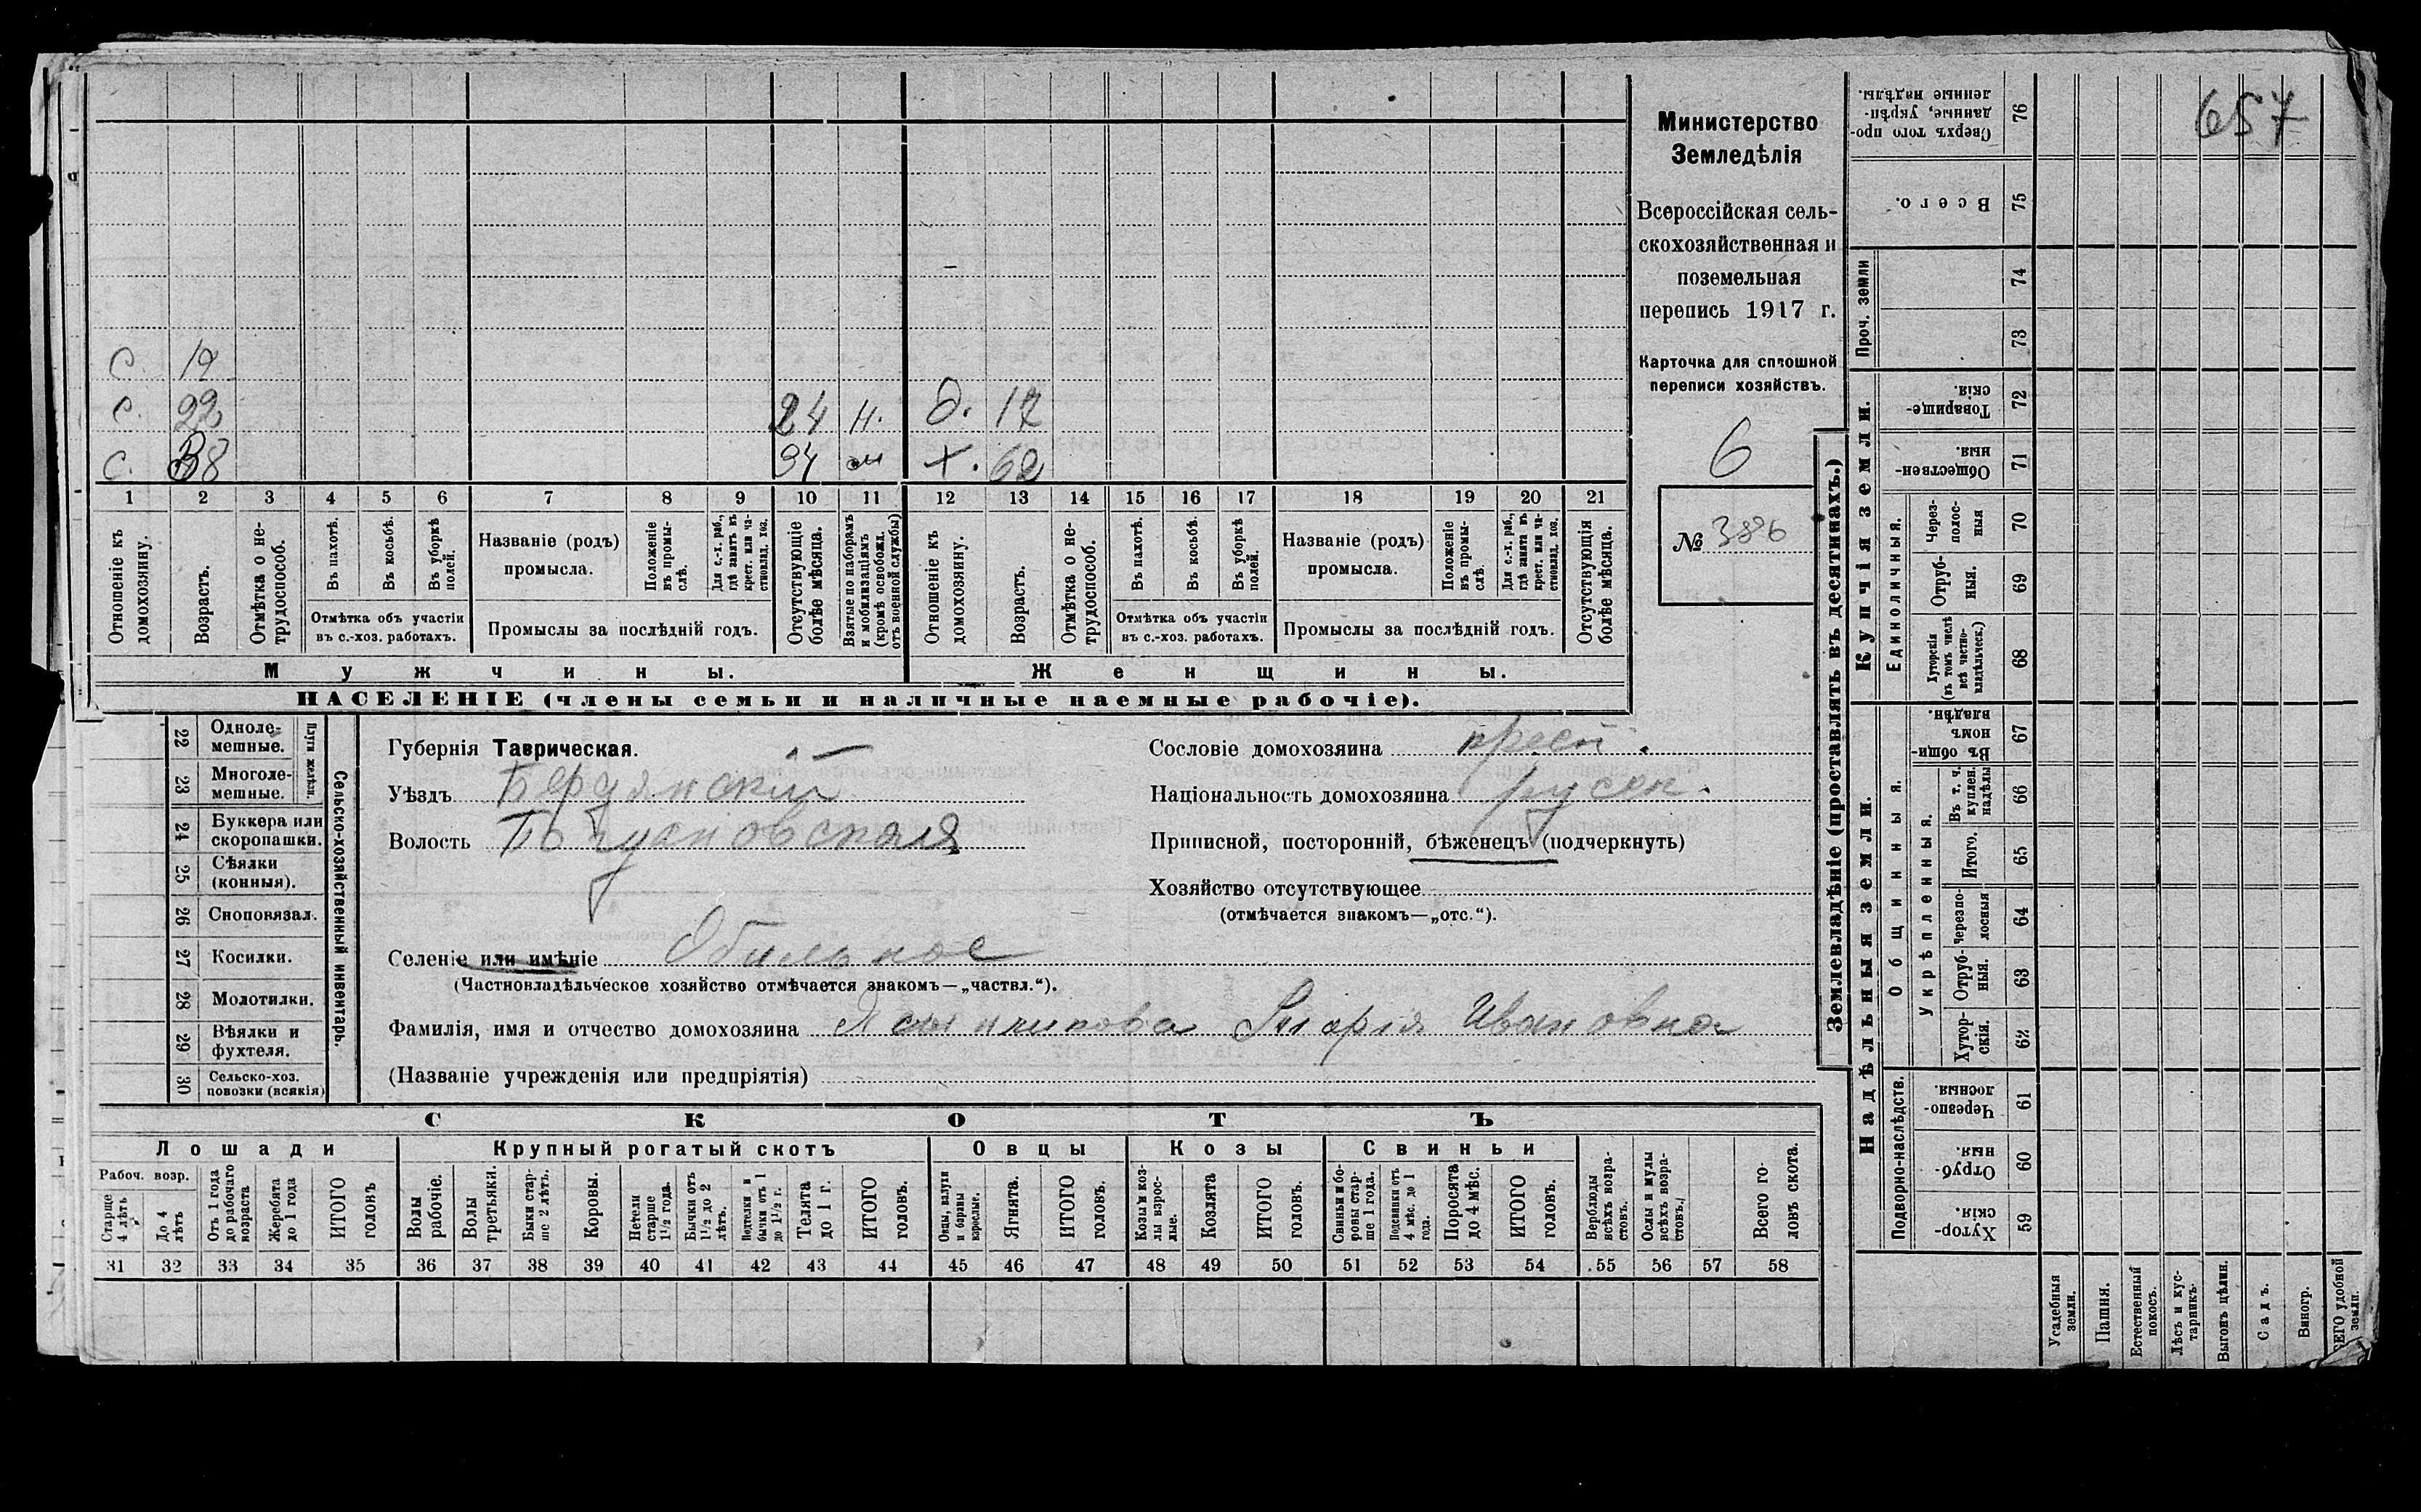 657
Министерство
Земледѣлія
Всероссійская сель-
скохозяйственная и
поземельная
перепись 1917 г.
Карточка для сплошной
переписи хозяйствъ.
6
№ 386
С. 19
С. 22 24 н. д. 17
С. 38 34 х. 62
1 2 3 4 5 6 7 8 9 10 11 12 13 14 15 16 17 18 19 20 21
Отношеніе къ домохозяину.
Возрастъ.
Отмѣтка о не-трудоспособ.
Въ пахотѣ.
Въ косьбѣ.
Въ уборкѣ полей.
Отмѣтка объ участіи
въ с.-хоз. работахъ.
Названіе (родъ)
промысла.
Положеніе въ промы-слѣ.
Для с.-х. раб., гдѣ занятъ въ крест. или ча-стновлад. хоз.
Промыслы за послѣдній годъ.
Отсутствующіе болѣе мѣсяца.
Взятые по наборамъ и мобилизаціямъ (кромѣ освобожд. отъ военной службы)
Отношеніе къ домохозяину.
Возрастъ.
Отмѣтка о не-трудоспособ.
Въ пахотѣ.
Въ косьбѣ.
Въ уборкѣ полей.
Отмѣтка объ участіи
въ с.-хоз. работахъ.
Названіе (родъ)
промысла.
Положеніе въ промы-слѣ.
Для с.-х. раб., гдѣ занята въ крест. или ча-стновлад. хоз.
Промыслы за послѣдній годъ.
Отсутствующія болѣе мѣсяца.
Мужчины.
Женщины.
НАСЕЛЕНІЕ (члены семьи и наличные наемные рабочіе).
22 Одноле-мешные.
23 Многоле-мешные.
Плуги желѣзн.
24 Буккера или скоропашки.
25 Сѣялки (конныя).
26 Сноповязал.
27 Косилки.
28 Молотилки.
29 Вѣялки и фухтеля.
30 Сельско-хоз. повозки (всякія)
Сельско-хозяйственный инвентарь.
Губернія Таврическая.
Уѣздъ Бердянскій
Волость
Селеніе или имѣніе Обильное
(Частновладѣльческое хозяйство отмѣчается знакомъ—„частвл.“).
Фамилія, имя и отчество домохозяина Марія Ивановна
(Названіе учрежденія или предпріятія)
Сословіе домохозяина крест.
Національность домохозяина русск.
Приписной, посторонній, бѣженецъ (подчеркнуть)
Хозяйство отсутствующее
(отмѣчается знакомъ—„отс.“).
СКОТЪ
Лошади
Крупный рогатый скотъ
Овцы
Козы
Свиньи
Рабоч. возр.
Старше 4 лѣтъ
До 4 лѣтъ
Отъ 1 года до рабочаго возраста
Жеребята до 1 года
ИТОГО головъ
Волы рабочіе.
Волы третьяки.
Быки стар-ше 2 лѣтъ.
Коровы.
Нетели старше 1 1/2 года.
Бычки отъ 1 1/2 до 2 лѣтъ.
Подтелки и бычки отъ 1 до 1 1/2 г.
Телята до 1 г.
ИТОГО головъ.
Овцы, валухи и бараны взрослые.
Ягнята.
ИТОГО головъ.
Козы и коз-лы взрос-лые.
Козлята
ИТОГО головъ.
Свиньи и бо-ровы стар-ше 1 года.
Подсвинки отъ 4 мѣс. до 1 года.
Поросята до 4 мѣс.
ИТОГО головъ.
Верблюды всѣхъ возра-стовъ.
Ослы и мулы всѣхъ возра-стовъ.
Всего го-ловъ скота.
31 32 33 34 35 36 37 38 39 40 41 42 43 44 45 46 47 48 49 50 51 52 53 54 55 56 57 58
Землевладѣніе (проставлять въ десятинахъ.)
Купчія земли.
Надѣльныя земли.
Сверхъ того про-данные, укрѣп-ленные надѣлы. 76
Всего. 75
Проч. земли
74
73
Товарище-скія. 72
Обществен-ныя. 71
Единоличныя.
Через-полос-ныя 70
Отруб-ныя. 69
Хуторскія (въ томъ числѣ всѣ частно-владѣльческ.) 68
Въ общин-номъ владѣн. 67
Общинныя.
Укрѣпленныя.
Въ т. ч. куплен. надѣлы 66
Итого. 65
Черезпо-лосныя 64
Отруб-ныя. 63
Хутор-скія. 62
Подворно-наслѣдств.
Черезпо-лосныя 61
Отруб-ныя. 60
Хутор-скія. 59
Усадебныя земли.
Пашня.
Естественный покосъ.
Лѣсъ и кус-тарникъ.
Выгонъ цѣлин.
Садъ.
Виногр.